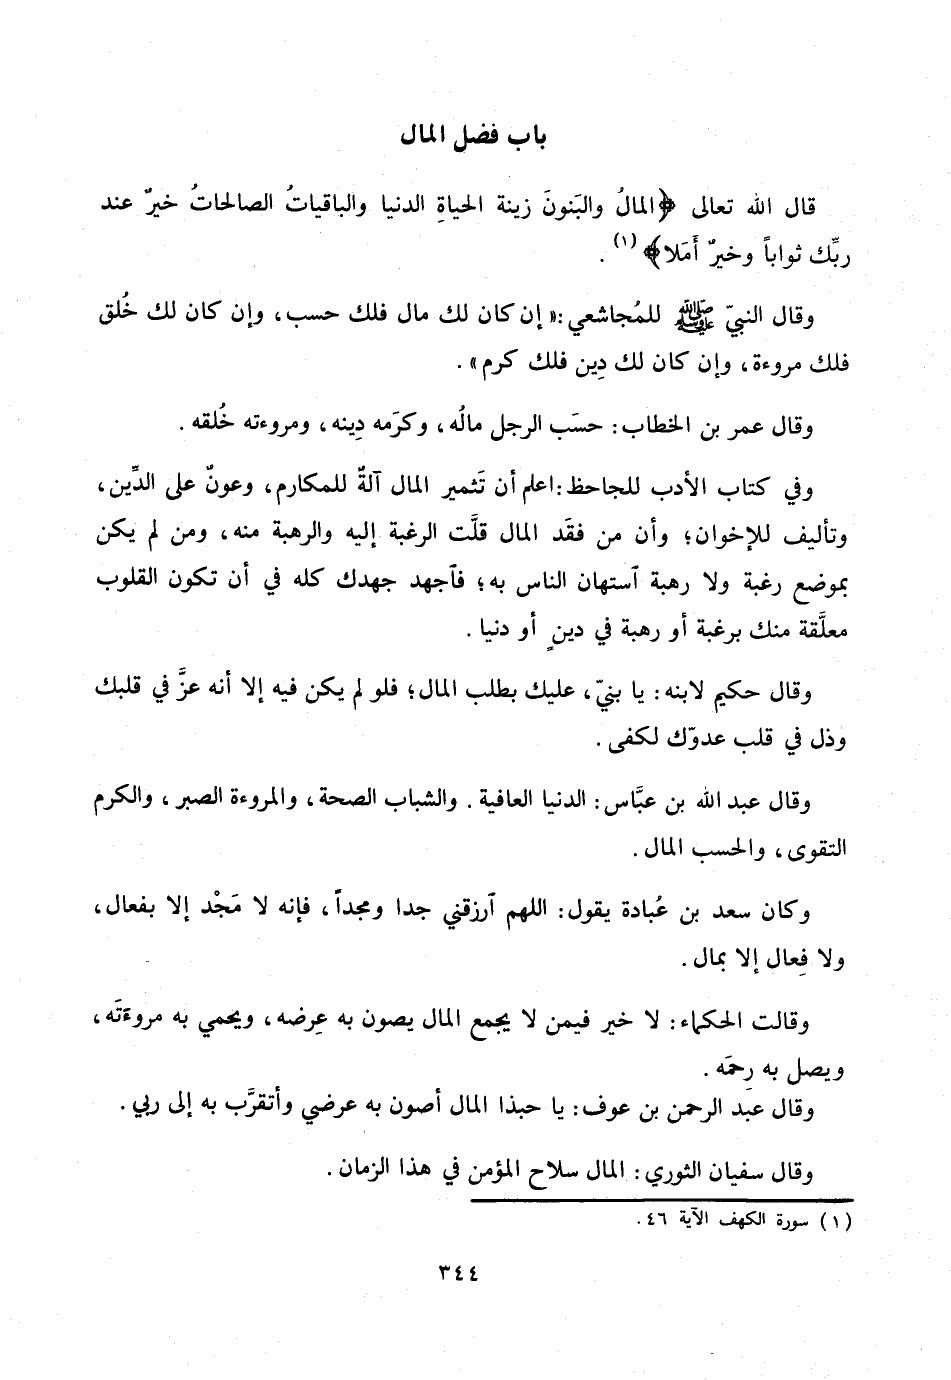 باب فضل المال
قال الله تعالى ﴿المالُ والبَنونَ زينة الحياةِ الدنيا والباقياتُ الصالحاتُ خيرٌ عند
ربِّك ثواباً وخيرٌ أَمَلا﴾ (١) .
وقال النبيّ ﷺ للمُجاشعي: «إن كان لك مال فلك حسب، وإن كان لك خُلق
فلك مروءة، وإن كان لك دِين فلك كرم» .
وقال عمر بن الخطاب: حسَب الرجل مالُه، وكرَمه دِينه، ومروءته خُلقه .
وفي كتاب الأدب للجاحظ: اعلم أن تَثمير المال آلةٌ للمكارم، وعونٌ على الدِّين،
وتأليف للإخوان؛ وأن من فقَد المال قلَّت الرغبة إليه والرهبة منه، ومن لم يكن
بموضع رغبة ولا رهبة ٱستهان الناس به؛ فٱجهد جهدك كله في أن تكون القلوب
معلَّقة منك برغبة أو رهبة في دينٍ أو دنيا .
وقال حكيم لابنه: يا بنيّ، عليك بطلب المال؛ فلو لم يكن فيه إلا أنه عزَّ في قلبك
وذل في قلب عدوّك لكفى .
وقال عبد الله بن عبَّاس: الدنيا العافية . والشباب الصحة، والمروءة الصبر، والكرم
التقوى، والحسب المال .
وكان سعد بن عُبادة يقول: اللهم ٱرزقني جدا ومجداً، فإنه لا مَجْد إلا بفعال،
ولا فِعال إلا بمال .
وقالت الحكماء: لا خير فيمن لا يجمع المال يصون به عِرضه، ويحمي به مروءتَه،
ويصل به رحِمَه .
وقال عبد الرحمن بن عوف: يا حبذا المال أصون به عرضي وأتقرَّب به إلى ربي .
وقال سفيان الثوري: المال سلاح المؤمن في هذا الزمان .
(١) سورة الكهف الآية ٤٦ .
٣٤٤